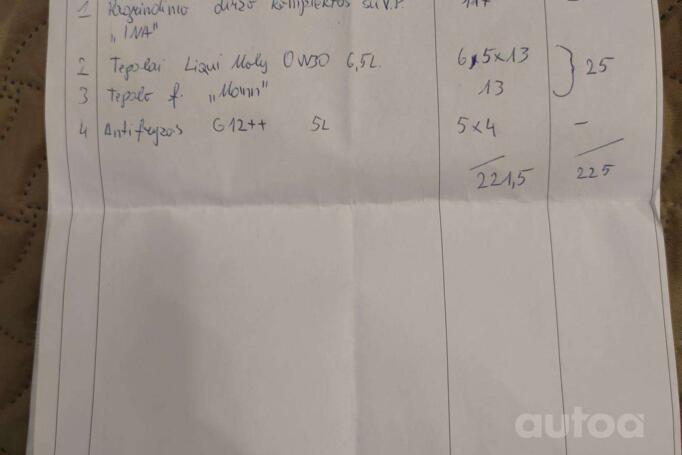 1 Pagrindinio diržo komplektas su V.P.
"INA"
2 Tepalai Liqui Moly 0W30 6,5L. 6,5x13 25
3 Tepalo f. "Mann" 13
4 Antifryzas G12++ 5L 5x4 –
221,5 225
autoa